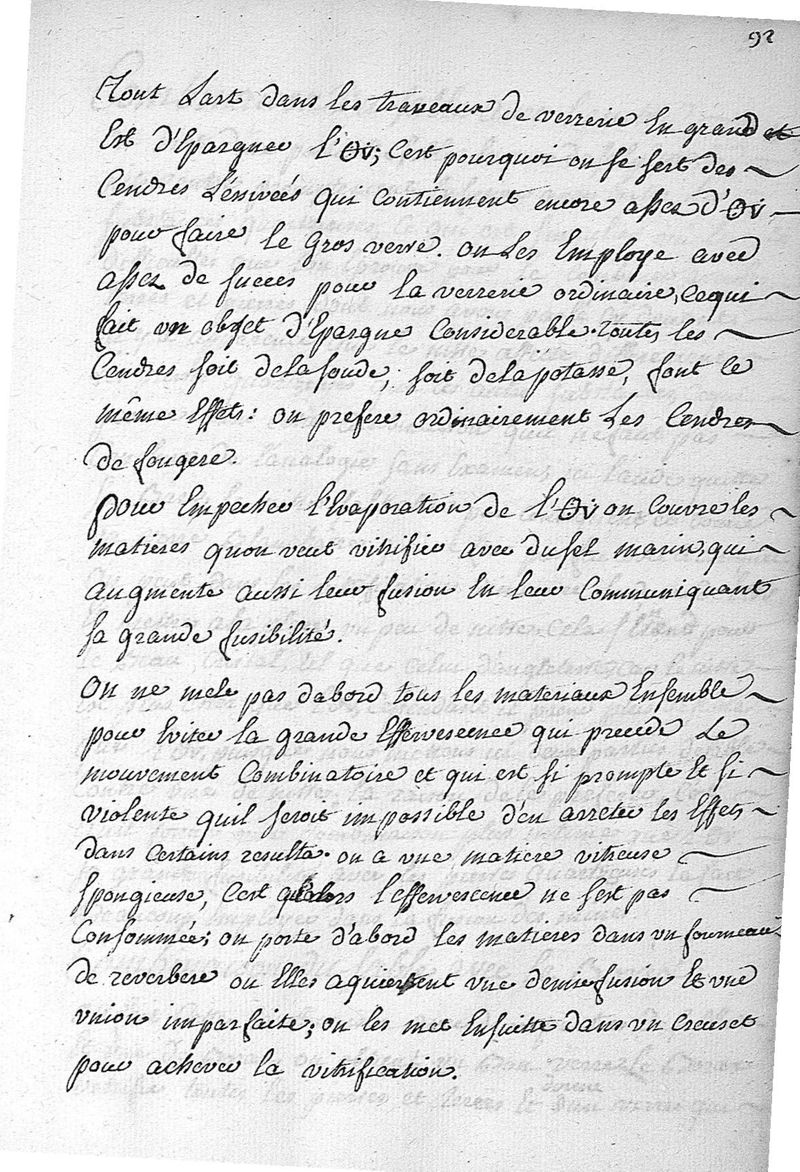 92
Tout Lart dans les traveaux de verrerie En grand
Est d'Epargner l'; C'est pourquoi on se sert des
Cendres Léssivées qui contiennent encore assez d'
pour faire le Gros verre. on Les Employe avec
assez de succes pour la verrerie ordinaire, cequi
fait un objet d'Epargne Considerable. toutes les
Cendres soit de la soude, soit de la potasse, font le
même Effets: on prefere ordinairement Les Cendres
de fougere.
pour Empecher l'Evaporation de l' on Couvre les
matieres quon veut vitrifier avec du sel marin, qui
augmente aussi leur fusion En leur Communiquant
sa grande fusibilité.
On ne mele pas dabord tous les materiaux Ensemble
pour Eviter la grande Effervescence qui precede Le
mouvement Combinatoire et qui est si prompte Et si
violente quil seroit impossible d'en arreter les Effets
dans Certains resulta. on a vue matiere vitreuse
Spongieuse, C'est qualors l'effervescence ne sest pas
Consommée; on porte d'abord les matieres dans un fourneau
de reverbere ou Elles aquierent une demie fusion Et une
union imparfaite; on les met Ensuitte dans un Creuset
pour achever la vitrification.